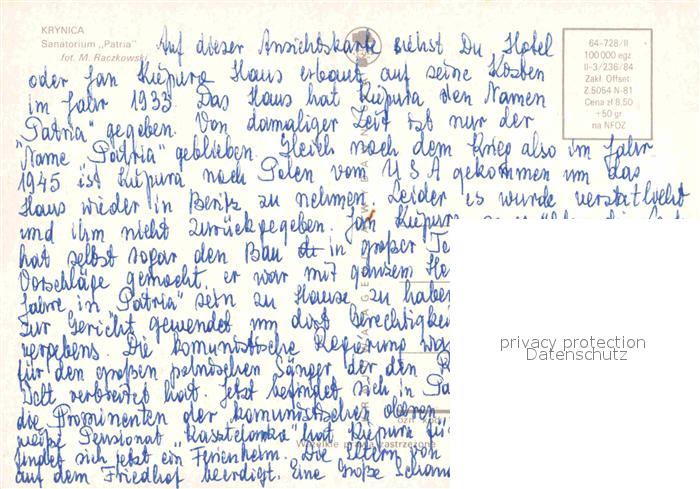 KRYNICA
Sanatorium „Patria"
fot. M. Raczkowski
64-728/II
100 000 egz
II-3/236/84
Zakł. Offset
Z.5054 N-81
Cena zł 8,50
+50 gr
na NFOZ
Auf dieser Ansichtskarte siehst Du Hotel
oder Jan Kiepura Haus erbaut auf seine Kosten
im Jahr 1933. Das Haus hat Kiepura den Namen
"Patria" gegeben. Von damaliger Zeit ist nur der
Name "Patria" geblieben. Gleich nach dem Krieg also im Jahr
1945 ist Kiepura nach Polen vom USA gekommen um das
Haus wieder in Besitz zu nehmen. Leider es wurde verstatlicht
und ihm nicht zurückgegeben. Jan Kiepura
hat selbst sogar den Bau in großer
Vorschläge gemacht, er war mit ganzem
Jahre in "Patria" sein zu Hause zu haben
Zur Gericht gewendet um dort
vergebens. Die komunistische Regierung
für den großen polnischen Sänger der den
Welt verbreitet hat. Jetzt befindet sich in
die Prominenten der komunistischen oberen
weiße Pensionat "Kasztelanka" hat Kiepura
findet sich jetzt ein Ferienheim. Die Eltern von
auf dem Friedhof beerdigt. Eine Große
Wszelkie zastrzeżone
privacy protection
Datenschutz